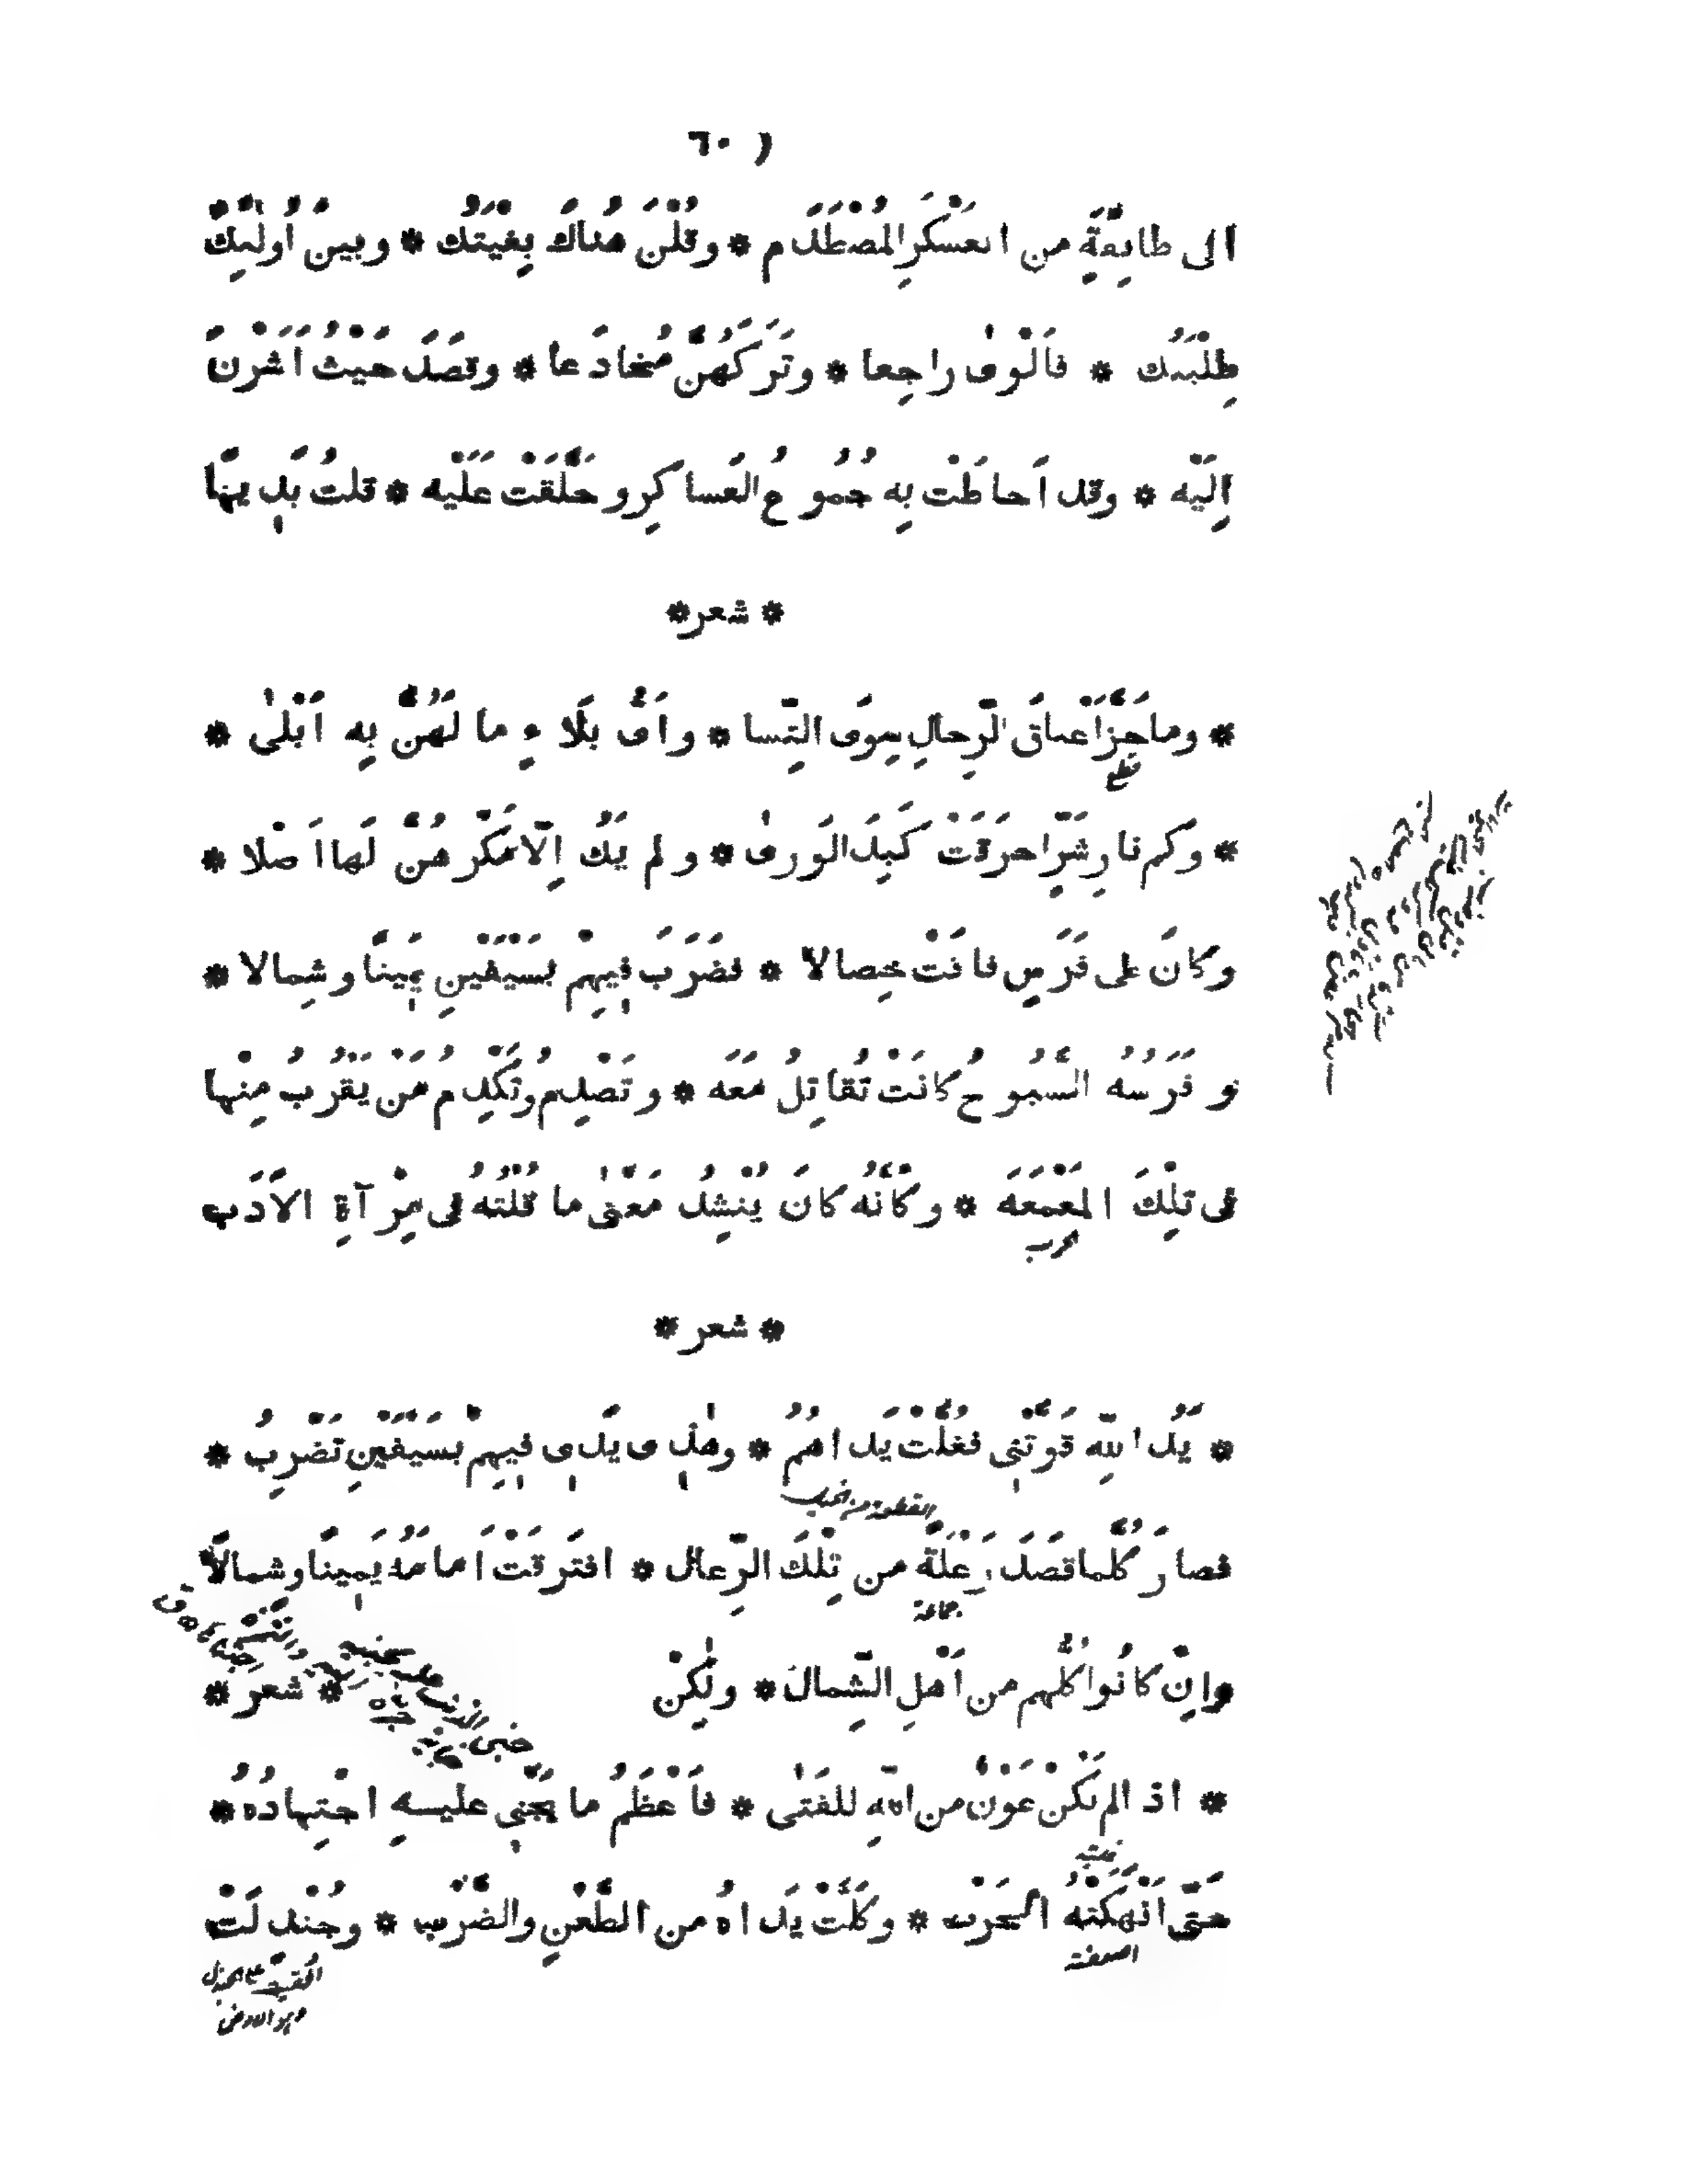 ٦٠ )
الى طايِفَةٍ من العَسْكَرِ المُصْطَدَم * وقُلْنَ هُناكَ بِغْيَتُك * وبينَ أُولٰئِكَ
طِلْبَتُك * فاَلْوىٰ راجِعا * وتَرَكَهُنَّ مُخادَعا * وقصَدَ حَيْثُ اَشَرْنَ
اِلَيْه * وقد اَحاطَتْ بِه جُمُوعُ العَساكِرِ وحَلَّقَتْ عَلَيْه * قلتُ بَدِيهًا
* شعر *
* وما حَزَّ اَعناقَ الرِّجالِ سِوَى النِّسا * واَىُّ بَلَاءٍ ما لَهُنَّ بِه اَبْلىٰ *
قطع
* وكم نارِ شَرٍّ احرَقَتْ كَبِدَ الوَرىٰ * ولم يَكُ اِلّا مَكْرُهُنَّ لَها اَصْلا *
وكانَ على فَرَسٍ فاقَتْ خِصالا * فضَرَبَ فِيهِمْ بسَيْفَيْنِ يَمِينًا وشِمالا *
وفَرَسُهُ السَّبُوحُ كانَتْ تُقاتِلُ مَعَه * وتَصْدِمُ وتَكْدِمُ مَنْ يَقْرُبُ مِنْها
فى تِلْكَ المَعْمَعَه * وكأَنَّهُ كانَ يُنْشِدُ مَعْنىٰ ما قُلْتُهُ فى مِرْآةِ الاَدَب
الحرب
* شعر *
* يَدُ اللهِ قَوَّتْنِى فغُلَّتْ يَداهُمُ * وهٰذِى يَدِى فِيهِمْ بسَيْفَيْنِ تَضْرِبُ *
القطعة من الخيل
فصارَ كُلَّما قصَدَ رَعْلَةً من تِلْكَ الرِّعال * افتَرَقَتْ اَمامَهُ يَمِينًا وشمالاً
جماعة
واِنْ كانُوا كُلُّهم من اَهْلِ الشِّمال * ولٰكِنْ * شعر *
* اذا لم يَكُنْ عَوْنٌ من اللهِ للفَتَىٰ * فاَعْظَمُ ما يَجْنِى عليهِ اجْتِهادُهُ *
حَتّى اَنْهَكَتْهُ الحَرْب * وكَلَّتْ يَداهُ من الطَّعْنِ والضَّرْب * وجُنْدِلَتْ
اضعفته